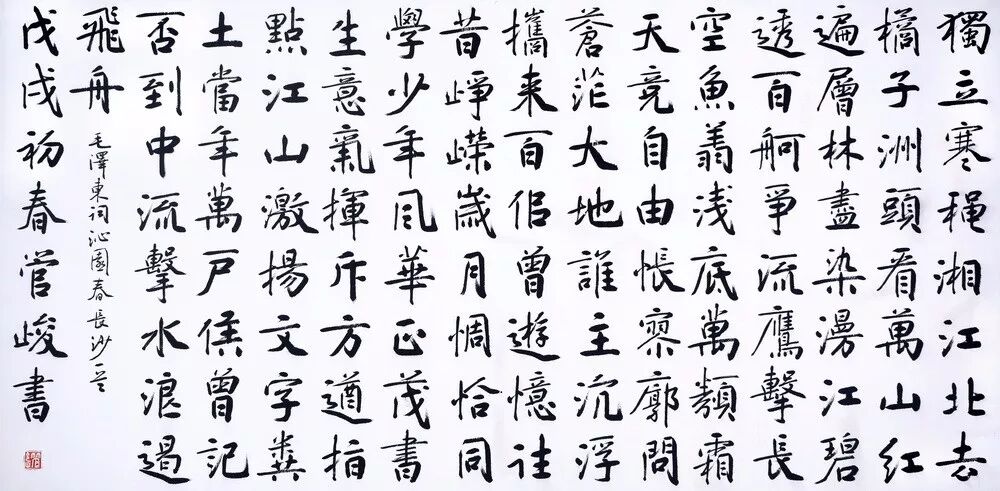 獨立寒穐湘江北去
橘子洲頭看萬山紅
遍層林盡染漫江碧
透百舸爭流鷹擊長
空魚翔淺底萬類霜
天竞自由悵寥廓問
蒼茫大地誰主沉浮
攜来百侣曾遊憶往
昔崢嶸歲月惆恰同
學少年風華正茂書
生意氣揮斥方遒指
點江山激揚文字糞
土當年萬戸侯曾記
否到中流擊水浪遏
飛舟
毛澤東词沁園春長沙一首
戊戌初春管峻書